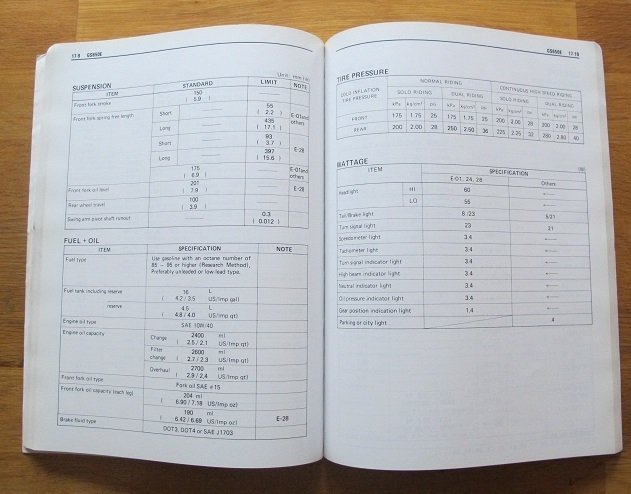 17-9 GS650E
Unit: mm (in)
SUSPENSION
ITEM STANDARD LIMIT NOTE
Front fork stroke 150 ( 5.9 )
Front fork spring free length Short 55 ( 2.2 ) E-01 and others
Long 435 ( 17.1 )
Short 93 ( 3.7 ) E-28
Long 397 ( 15.6 )
Front fork oil level 175 ( 6.9 ) E-01 and others
201 ( 7.9 ) E-28
Rear wheel travel 100 ( 3.9 )
Swing arm pivot shaft runout 0.3 ( 0.012 )
FUEL + OIL
ITEM SPECIFICATION NOTE
Fuel type Use gasoline with an octane number of
85 – 95 or higher (Research Method),
Preferably unleaded or low-lead type.
Fuel tank including reserve 16 L
( 4.2/3.5 US/Imp gal)
reserve 4.5 L
( 4.8/4.0 US/Imp qt)
Engine oil type SAE 10W/40
Engine oil capacity Change 2400 ml
( 2.5/2.1 US/Imp qt)
Filter change 2600 ml
( 2.7/2.3 US/Imp qt)
Overhaul 2700 ml
( 2.9/2.4 US/Imp qt)
Front fork oil type Fork oil SAE #15
Front fork oil capacity (each leg) 204 ml
( 6.90/7.18 US/Imp oz)
190 ml
( 6.42/6.69 US/Imp oz) E-28
Brake fluid type DOT3, DOT4 or SAE J1703
GS650E 17-10
TIRE PRESSURE
COLD INFLATION TIRE PRESSURE NORMAL RIDING CONTINUOUS HIGH SPEED RIDING
SOLO RIDING DUAL RIDING SOLO RIDING DUAL RIDING
kPa kg/cm² psi kPa kg/cm² psi kPa kg/cm² psi kPa kg/cm² psi
FRONT 175 1.75 25 175 1.75 25 200 2.00 28 200 2.00 28
REAR 200 2.00 28 250 2.50 36 225 2.25 32 280 2.80 40
WATTAGE
ITEM SPECIFICATION
E-01, 24, 28 Others
Headlight HI 60 ←
LO 55 ←
Tail/Brake light 8/23 5/21
Turn signal light 23 21
Speedometer light 3.4 ←
Tachometer light 3.4 ←
Turn signal indicator light 3.4 ←
High beam indicator light 3.4 ←
Neutral indicator light 3.4 ←
Oil pressure indicator light 3.4 ←
Gear position indication light 1.4 ←
Parking or city light 4